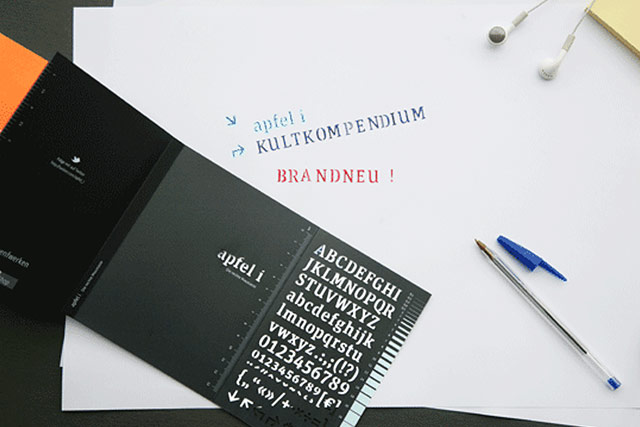 apfel i
KULTKOMPENDIUM
BRANDNEU !
apfel i
ABCDEFGHI
JKLMNOPQR
STUVWXYZ
abcdefghi
jklmnopqrstu
vwxyz.,:;(!?)
0123456789
0123456789[€]
{„“«»/+
apfel i